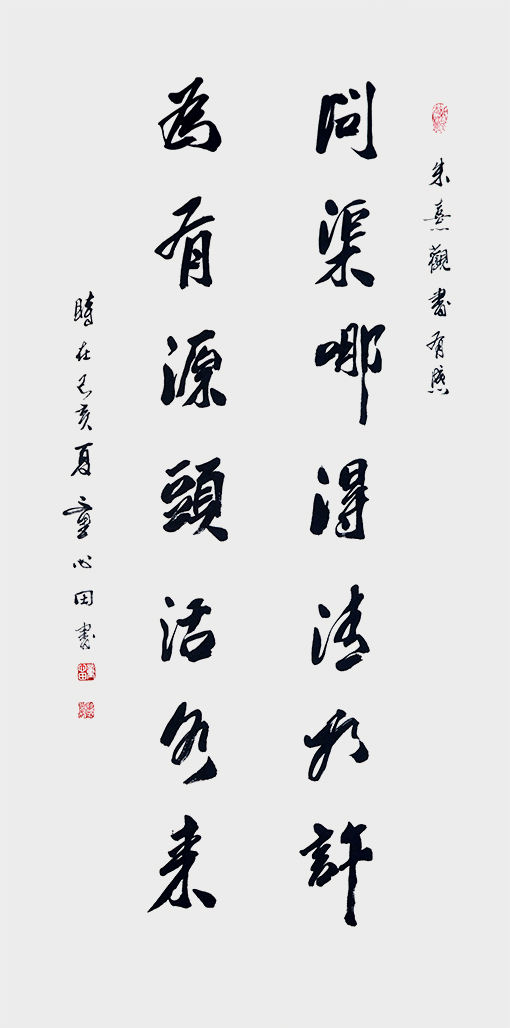 朱熹觀書有感
問渠哪得清如許
為有源頭活水來
時在己亥夏童心田書